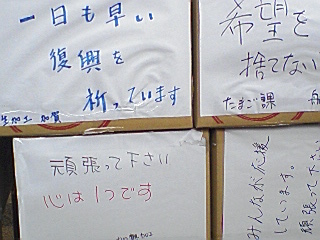 一日も早い
復興を
祈っています
生加工 加賀
希望を
捨てない
たまご課
頑張って下さい
心は1つです
みんなが応援
しています。
頑張って下さい